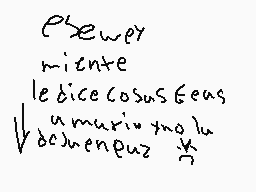 ese wey
miente
le dice cosas feas
a mario y no lo
deja en paz